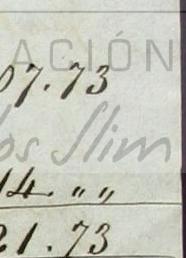 ACIÓN
07.73
os Slim
14. „ „
21.73